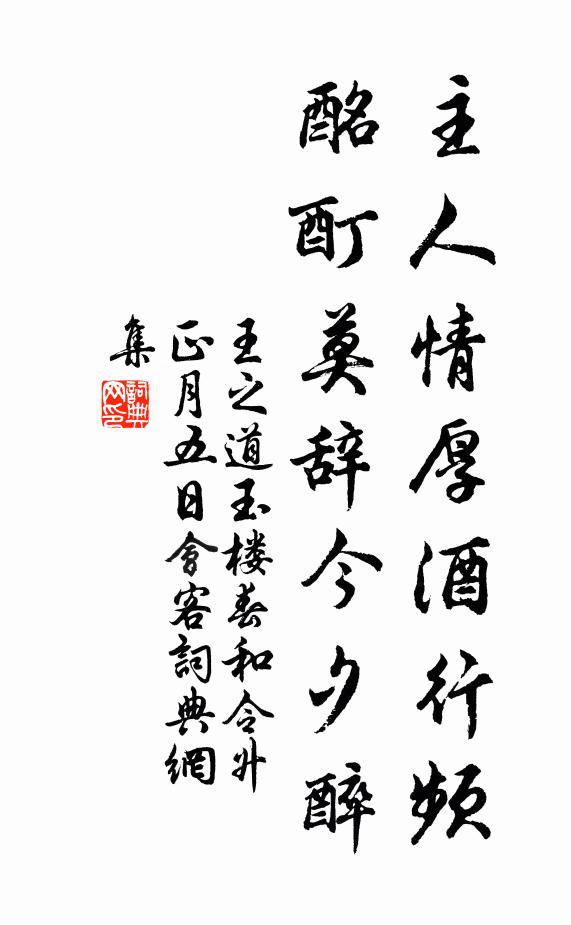 主人情厚酒行频
酩酊莫辞今夕醉
王之道玉楼春和令升
正月五日會客詞典網
集
詞典
网印